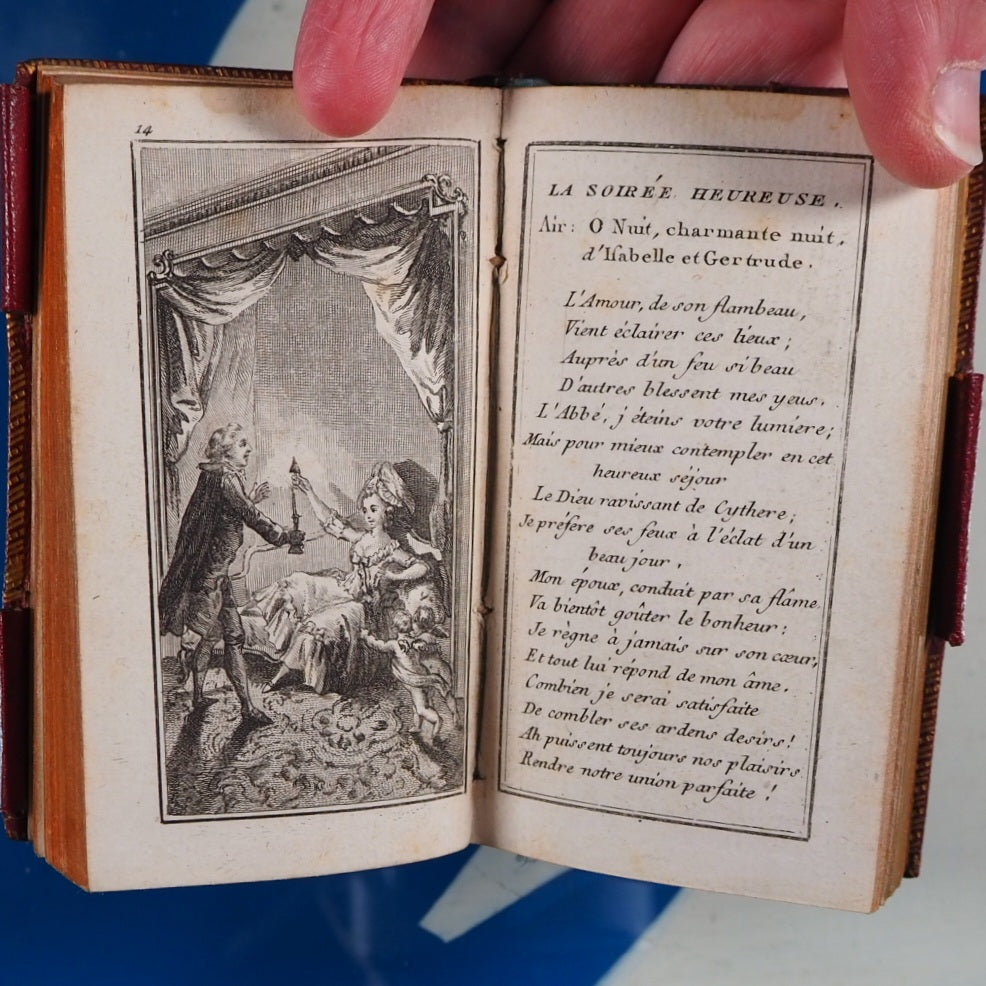 14
LA SOIRÉE HEUREUSE.
Air: O Nuit, charmante nuit,
d'Isabelle et Gertrude.
L'Amour, de son flambeau,
Vient éclairer ces lieux;
Auprès d'un feu si beau
D'autres blessent mes yeus.
L'Abbé, j'éteins votre lumiere;
Mais pour mieux contempler en cet
heureux séjour
Le Dieu ravissant de Cythere;
Je préfere ses feux à l'éclat d'un
beau jour.
Mon époux, conduit par sa flâme
Va bientôt goûter le bonheur:
Je règne à jamais sur son cœur,
Et tout lui répond de mon âme.
Combien je serai satisfaite
De combler ses ardens desirs!
Ah puissent toujours nos plaisirs
Rendre notre union parfaite!